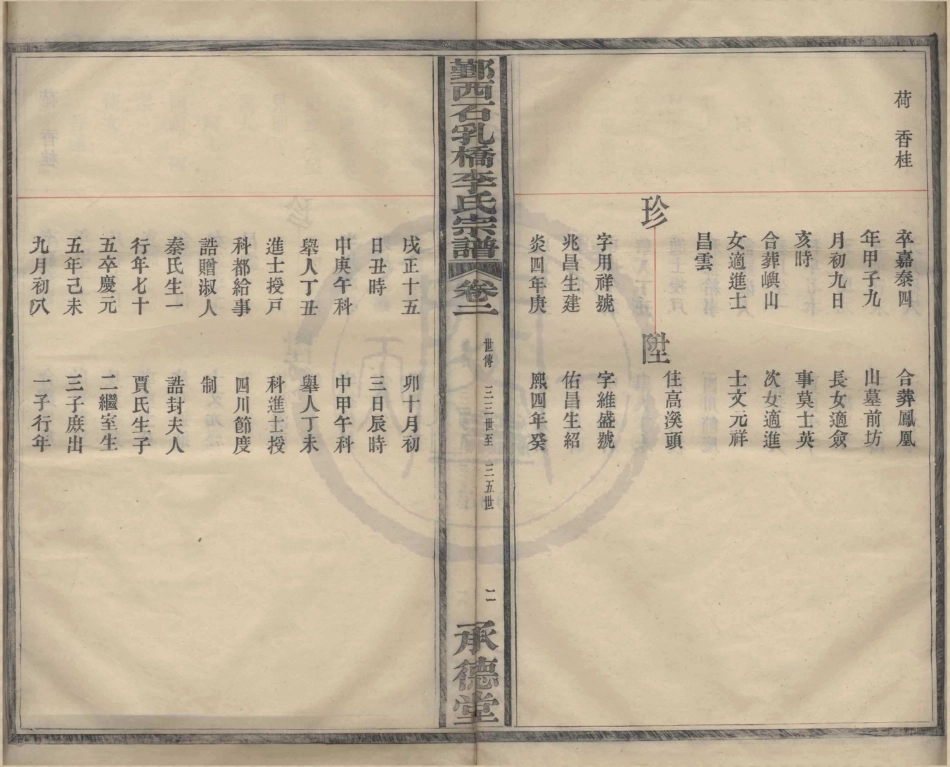 荷　香桂
卒嘉泰四
年甲子九
月初九日
亥時
合葬嶼山
女適進士
昌雲
珍
字用祥號
兆昌生建
炎四年庚
合葬鳳凰
山墓前坊
長女適僉
事莫士英
次女適進
士文元祥
住高溪頭
陞
字維盛號
佑昌生紹
熙四年癸
鄞西石乳橋李氏宗譜
卷二
世傳　三三世至　三五世
二
承德堂
戌正十五
日丑時
中庚午科
舉人丁丑
進士授戸
科都給事
誥贈淑人
秦氏生一
行年七十
五卒慶元
五年己未
九月初八
卯十月初
三日辰時
中甲午科
舉人丁未
科進士授
四川節度
制
誥封夫人
賈氏生子
二繼室生
三子庶出
一子行年